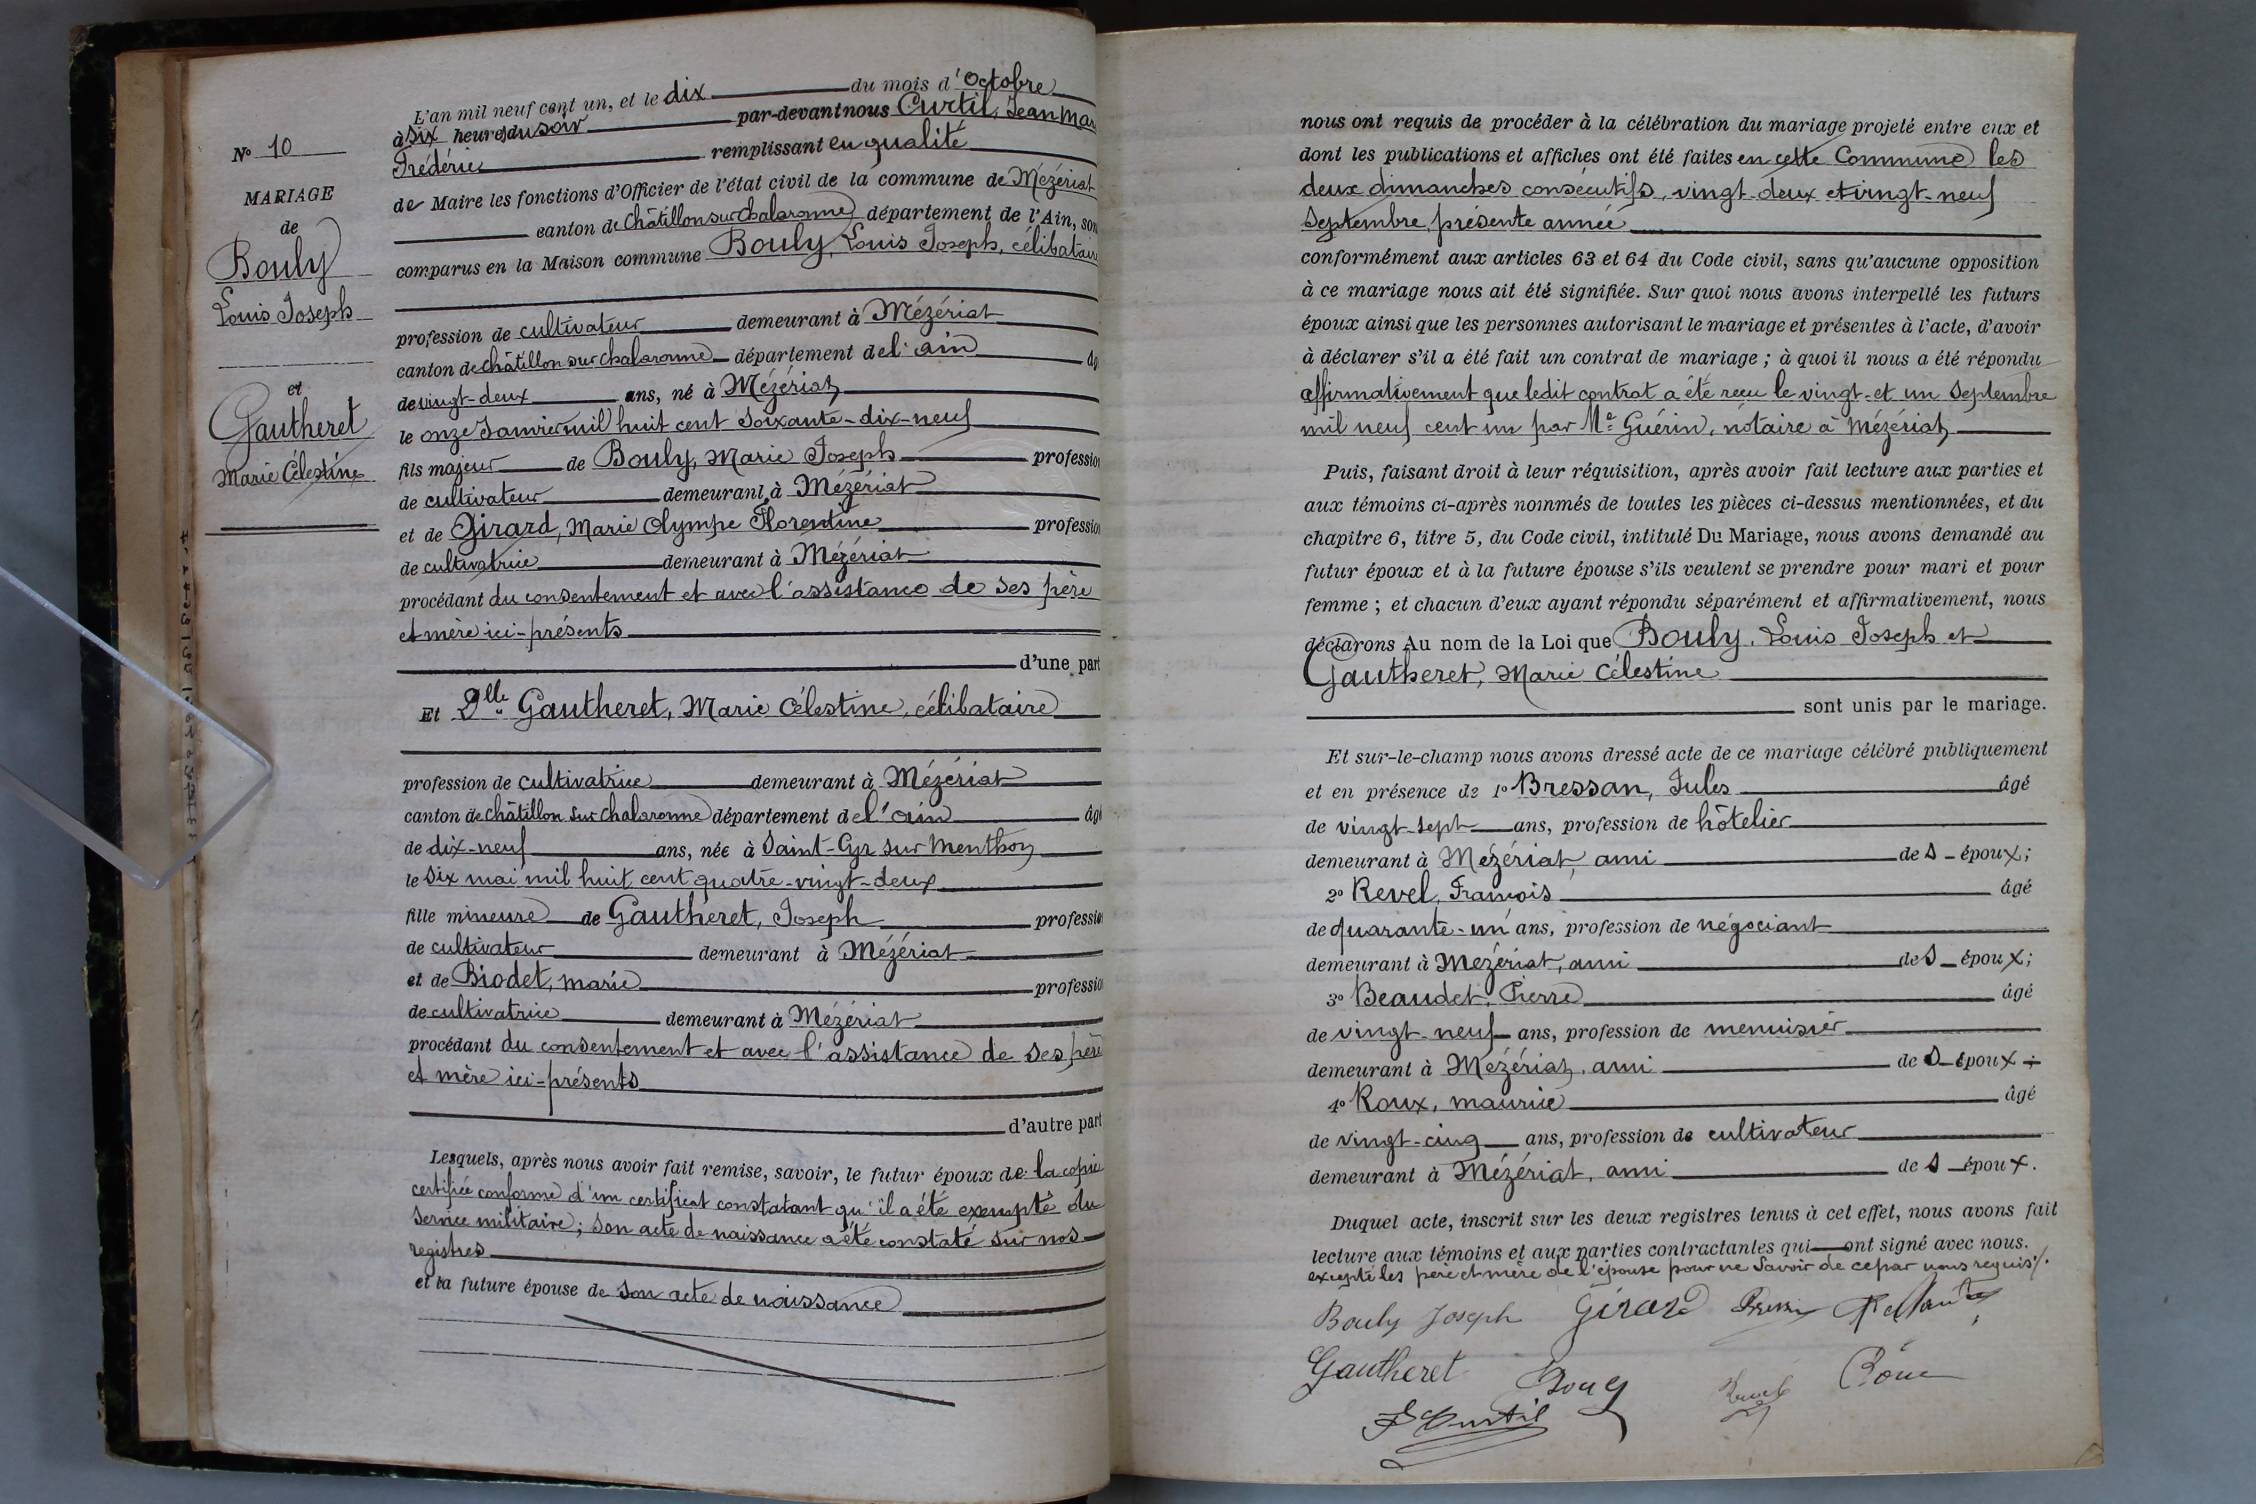 N° 10
MARIAGE
de
Bouly
Louis Joseph
et
Gautheret
Marie Célestine
L'an mil neuf cent un, et le dix du mois d'Octobre
à six heures du soir par-devant nous Curtil, Jean Mar
Frédéric remplissant en qualité
de Maire les fonctions d'Officier de l'état civil de la commune de Mézériat
canton de Châtillon sur Chalaronne département de l'Ain, son
comparus en la Maison commune Bouly, Louis Joseph, célibataire
profession de cultivateur demeurant à Mézériat
canton de châtillon sur chalaronne département de l'ain âg
de vingt-deux ans, né à Mézériat
le onze Janvier mil huit cent soixante-dix-neuf
fils majeur de Bouly, Marie Joseph profession
de cultivateur demeurant à Mézériat
et de Girard, Marie Olympe Florentine profession
de cultivatrice demeurant à Mézériat
procédant du consentement et avec l'assistance de ses père
et mère ici-présents
d'une part
Et Dlle Gautheret, Marie Célestine, célibataire
profession de cultivatrice demeurant à Mézériat
canton de châtillon sur chalaronne département de l'ain âgé
de dix-neuf ans, née à Saint-Cyr sur Menthon
le six mai mil huit cent quatre-vingt-deux
fille mineure de Gautheret, Joseph profession
de cultivateur demeurant à Mézériat
et de Biodet, marie profession
de cultivatrice demeurant à Mézériat
procédant du consentement et avec l'assistance de ses père
et mère ici-présents
d'autre part
Lesquels, après nous avoir fait remise, savoir, le futur époux de la copie
certifiée conforme d'un certificat constatant qu'il a été exempté du
service militaire; son acte de naissance a été constaté sur nos
registres
et la future épouse de son acte de naissance
nous ont requis de procéder à la célébration du mariage projeté entre eux et
dont les publications et affiches ont été faites en cette Commune les
deux dimanches consécutifs, vingt-deux et vingt-neuf
Septembre, présente année
conformément aux articles 63 et 64 du Code civil, sans qu'aucune opposition
à ce mariage nous ait été signifiée. Sur quoi nous avons interpellé les futurs
époux ainsi que les personnes autorisant le mariage et présentes à l'acte, d'avoir
à déclarer s'il a été fait un contrat de mariage ; à quoi il nous a été répondu
affirmativement que ledit contrat a été reçu le vingt-et un Septembre
mil neuf cent un par Me Guérin, notaire à Mézériat
Puis, faisant droit à leur réquisition, après avoir fait lecture aux parties et
aux témoins ci-après nommés de toutes les pièces ci-dessus mentionnées, et du
chapitre 6, titre 5, du Code civil, intitulé Du Mariage, nous avons demandé au
futur époux et à la future épouse s'ils veulent se prendre pour mari et pour
femme ; et chacun d'eux ayant répondu séparément et affirmativement, nous
déclarons Au nom de la Loi que Bouly, Louis Joseph et
Gautheret, Marie Célestine
sont unis par le mariage.
Et sur-le-champ nous avons dressé acte de ce mariage célébré publiquement
et en présence de 1° Bressan, Jules âgé
de vingt-sept ans, profession de hôtelier
demeurant à Mézériat, ami des époux;
2° Revel, François âgé
de quarante-un ans, profession de négociant
demeurant à Mézériat, ami des époux;
3° Beaudet, Pierre âgé
de vingt-neuf ans, profession de menuisier
demeurant à Mézériat, ami des époux;
4° Roux, maurice âgé
de vingt-cinq ans, profession de cultivateur
demeurant à Mézériat, ami des époux.
Duquel acte, inscrit sur les deux registres tenus à cet effet, nous avons fait
lecture aux témoins et aux parties contractantes qui ont signé avec nous.
excepté les père et mère de l'épouse pour ne savoir de ce par nous requis.
Bouly Joseph Girard
Gautheret Bouly Revel
Curtil